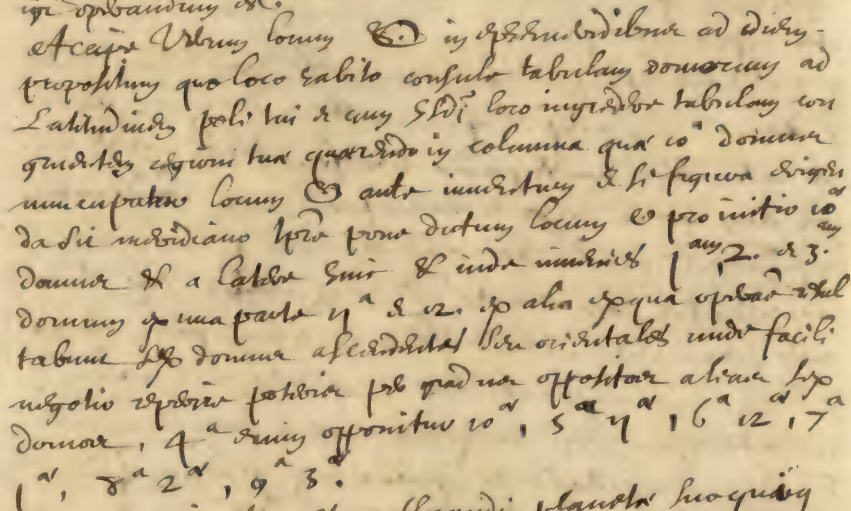 operandum est.
Accipe Verum locum ☉. in ephemeridibus ad diem
propositum quo loco habito consule tabulam domorum ad
Latitudinem poli tui et cum Solis loco ingredere tabulam con
gruentem regioni tuæ quærendo in columna quæ 10 domus
nuncupatur locum ☉ ante inventum et si figura erigen
da sit meridiano tempore pone dictum locum ☉ pro initio 10ᵃᵉ
domus & a latere hinc & inde invenies 1ᵃᵐ, 2. et 3.ᵃᵐ
domum ex una parte 11ᵃ et 12. ex alia ex qua operatione resul
tabunt sex domus ascendentes seu orientales unde facili
negotio reperire poteris per gradus oppositos alias sex
domos, 4ᵃ enim opponitur 10ᵃᵉ, 5ᵃ 11ᵃᵉ, 6ᵃ 12ᵃᵉ, 7ᵃ
1ᵃᵉ, 8ᵃ 2ᵃᵉ, 9ᵃ 3.ᵃᵉ
planetæ